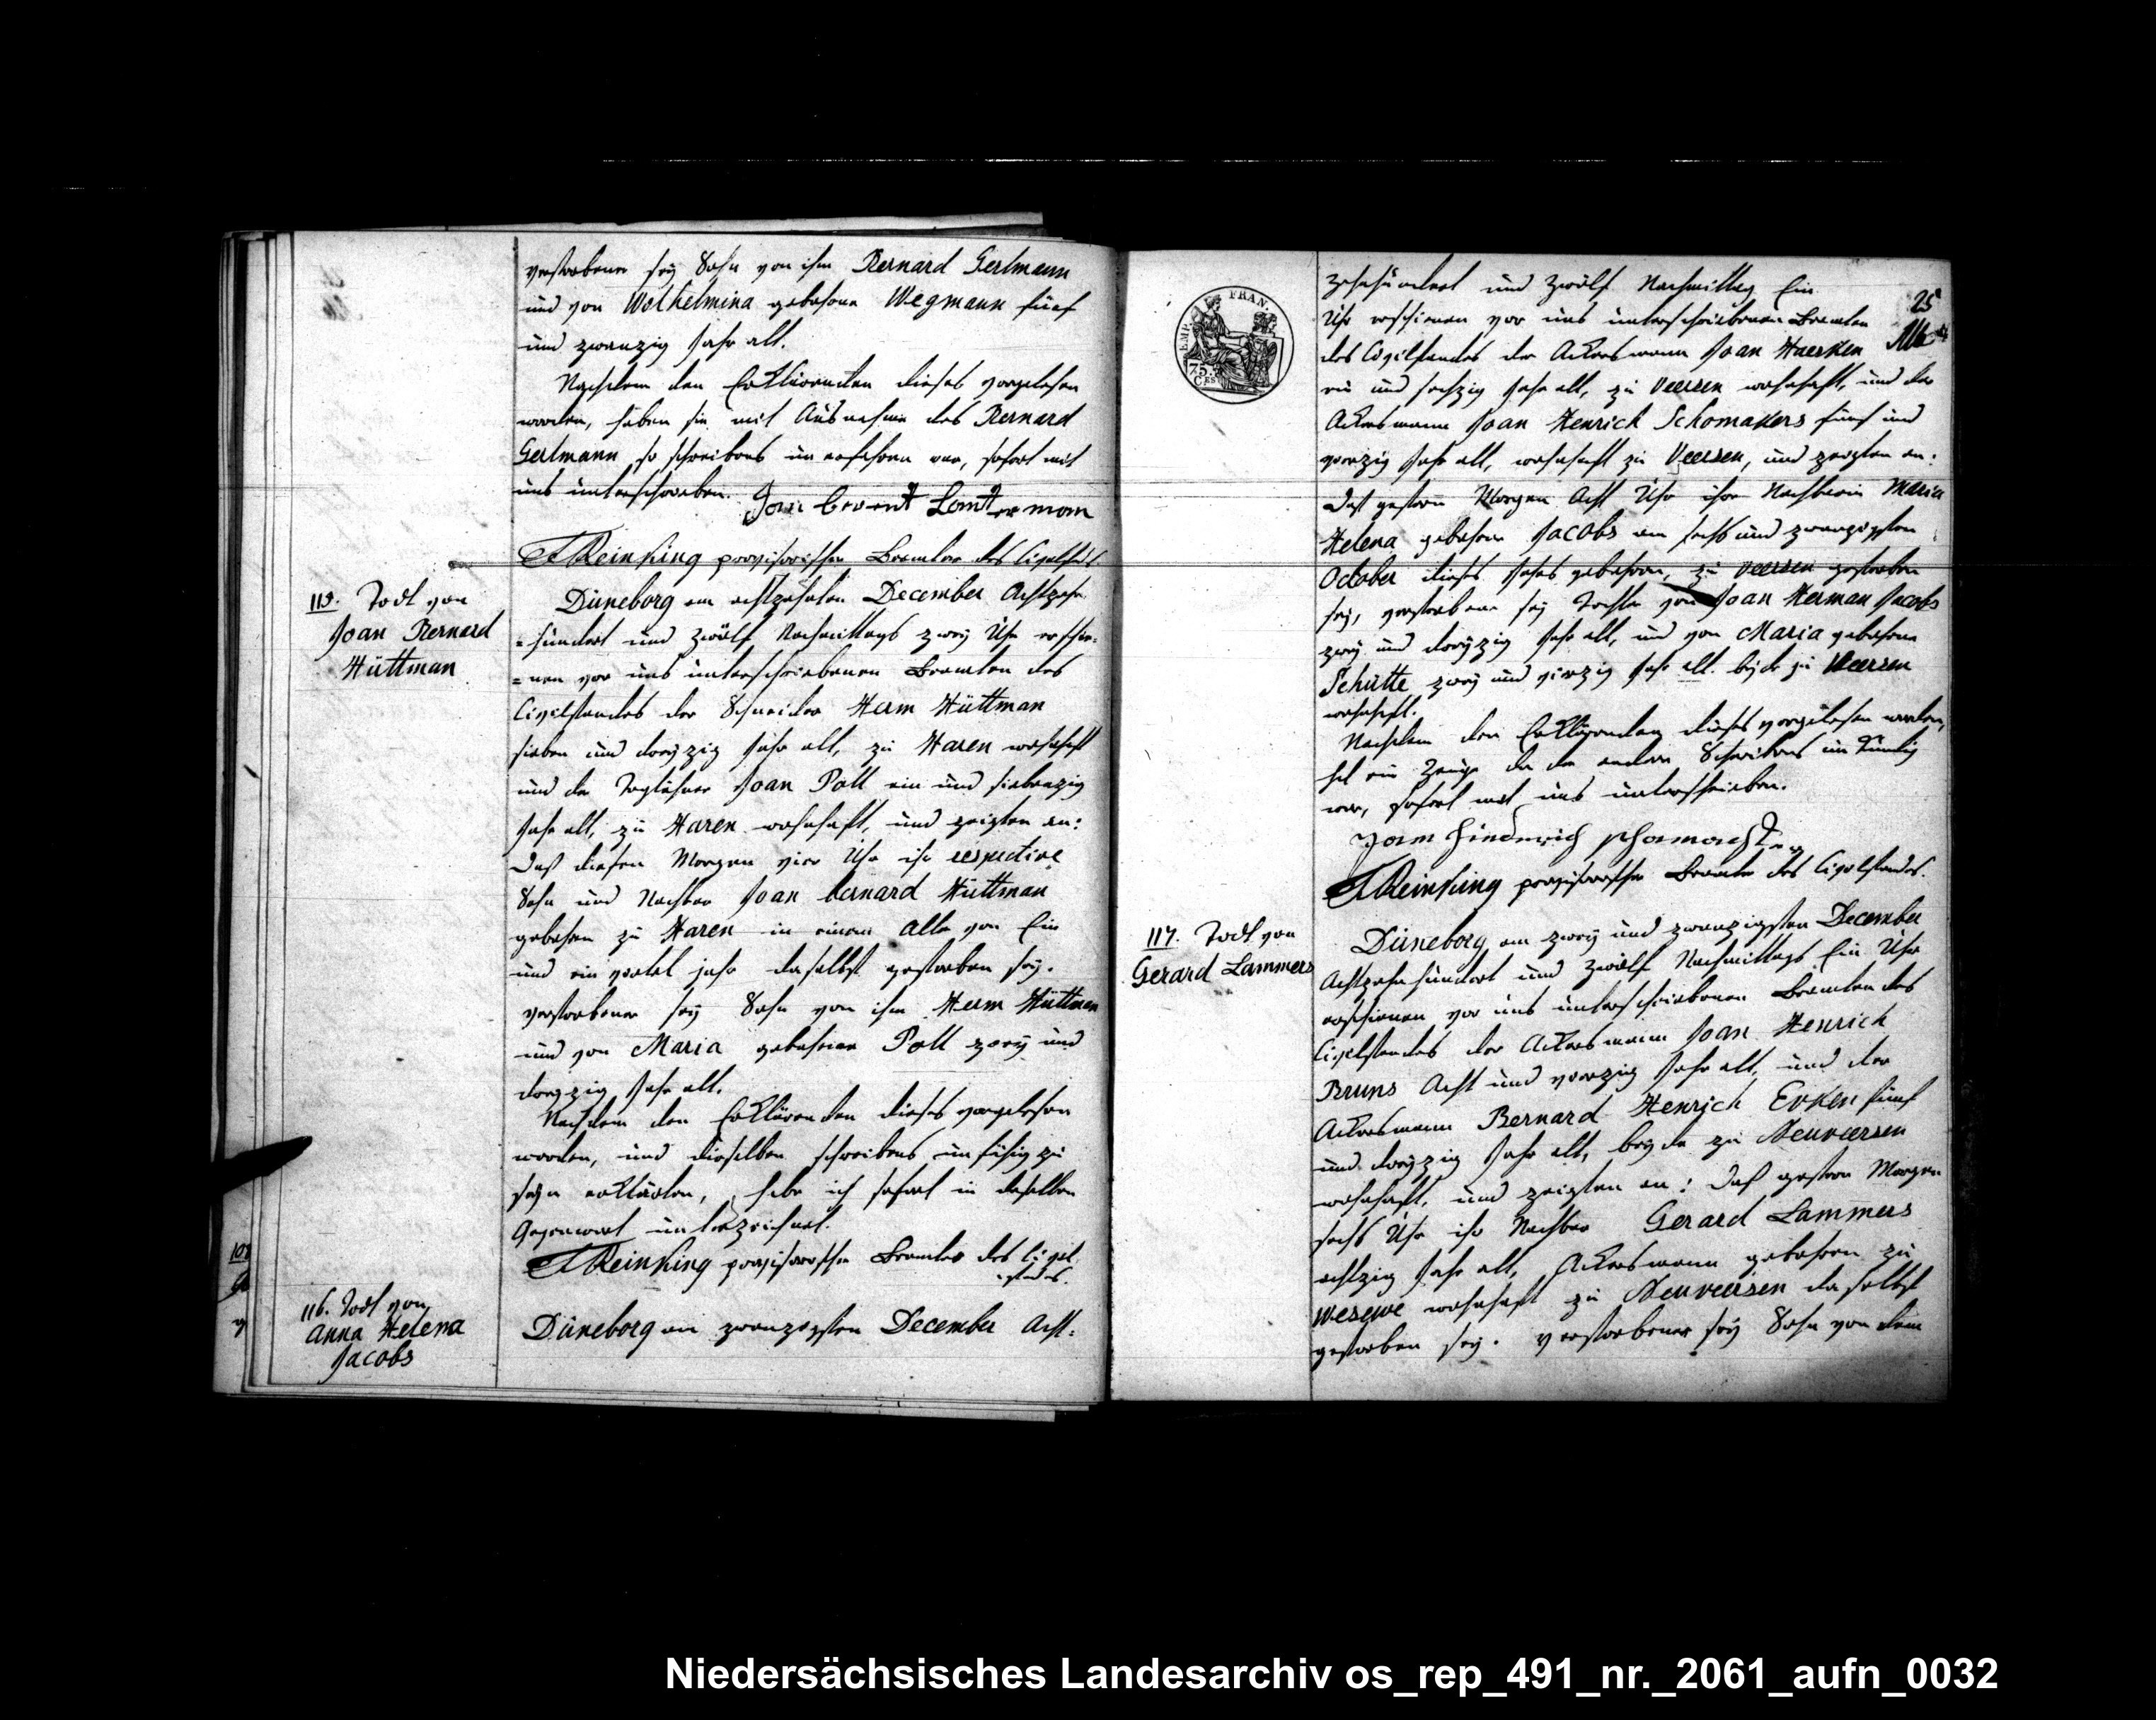 verstorbener sey Sohn von ihm Bernard Gerlmann
und von Wilhelmina gebohrne Wegmann fünf
und zwanzig Jahr alt.
Nachdem den Erklärenden dieses vorgelesen
worden, haben sie mit Ausnahme des Bernard
Gerlmann so schreibens unerfahren war, sofort mit
uns unterschrieben.
Reinking provisorischer Beamter des Civilst
115. Todt von
Joan Bernard
Hüttman
Düneborg am achtzehnten December Achtzehn
=hundert und zwölf Nachmittags zwey Uhr erschie=
=nen vor uns unterschriebenen Beamten des
Civilstandes der Schneider Herm Hüttman
sieben und dreyzig Jahr alt, zu Haren wohnhaft
und der Taglöhner Joan Poll ein und siebenzig
Jahr alt, zu Haren wohnhaft, und zeigten an:
Daß diesen Morgen vier Uhr ihr respective
Sohn und Nachbar Joan bernard Hüttman
gebohren zu Haren in einem Alter von Ein
und ein viertel jahr daselbst gestorben sey.
verstorbener sey Sohn von ihm Herm Hüttman
und von Maria gebohrne Poll zwey und
dreyzig Jahr alt.
Nachdem den Erklärenden dieses vorgelesen
worden, und dieselben schreibens unfähig zu
seyn erklärten, habe ich sofort in deselben
Gegenwart unterzeichnet.
Reinking provisorischer Beamter des Civil
standes.
116. Todt von
Anna Helena
Jacobs
Düneborg am zwanzigsten December Acht=
25
EMP. FRAN.
75.
CES
zehnhundert und zwölf Nachmittag Ein
Uhr erschienen vor uns unterschriebenen Beamten
des Civilstandes der Ackersmann Joan Haerken
ein und sechzig Jahr alt, zu Veersen wohnhaft, und der
Ackersmann Joan Henrich Schomakers fünf und
vierzig Jahr alt, wohnhaft zu Veersen, und zeigten an:
Daß gestern Morgen Acht Uhr ihre Nachbarin Maria
Helena gebohrne Jacobs am sechs und zwanzigsten
October dieses Jahres gebohren, zu Veersen gestorben
sey, verstorbene sey Tochter von Joan Herman Jacobs
zwey und dreyzig Jahr alt, und von Maria gebohrne
Schütte zwey und vierzig Jahr alt. beyde zu Veersen
wohnhaft.
Nachdem den Erklärenden dieses vorgelesen worden,
hat ein Zeuge da der andere Schreibens unkundig
war, sofort mit uns unterschrieben.
Reinking provisorischer Beamter des Civilstandes.
117. Todt von
Gerard Lammers
Düneborg am zwey und zwanzigsten December
Achtzehnhundert und zwölf Nachmittags Ein Uhr
erschienen vor uns unterschriebenen Beamten des
Civilstandes der Ackersmann Joan Henrich
Bruns Acht und vierzig Jahr alt, und der
Ackersmann Bernard Henrich Erken fünf
und dreyzig Jahr alt, beyde zu Neuveersen
wohnhaft, und zeigten an: Daß gestern Morgen
sechs Uhr ihr Nachbar Gerard Lammers
achtzig Jahr alt, Ackersmann gebohren zu
Wesewe wohnhaft zu Neuveersen daselbst
gestorben sey. verstorbener sey Sohn von dem
Niedersächsisches Landesarchiv os_rep_491_nr._2061_aufn_0032